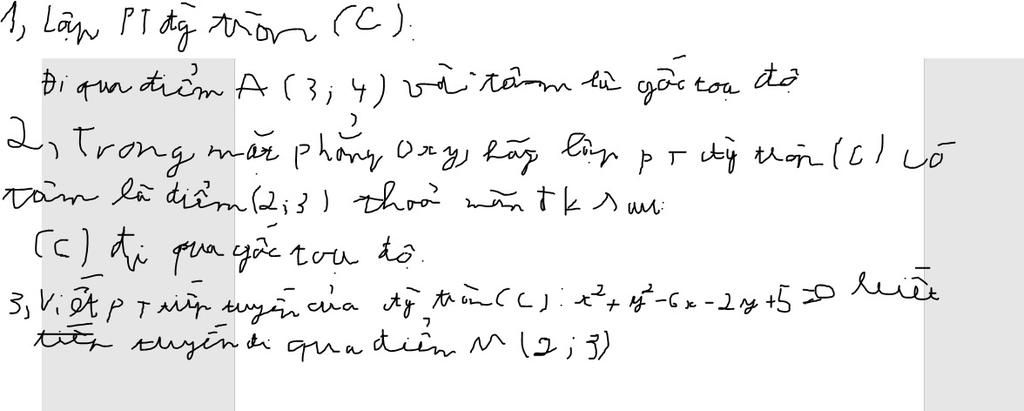 1, Lập PT đg tròn (C).
Đi qua điểm A (3; 4) với tâm là gốc toạ độ
2, Trong mặt phẳng Oxy, hãy lập PT đg tròn (C) có
tâm là điểm (2;3) thoả mãn đk sau:
(C) đi qua gốc toạ độ.
3, Viết PT tiếp tuyến của đg tròn (C): x² + y² - 6x - 2y + 5 = 0 biết
tiếp tuyến đi qua điểm M (2; 3)